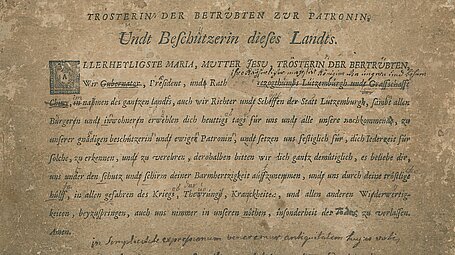 TROSTERIN DER BETRÜBTEN ZUR PATRONIN,
Undt Beschützerin dieses Landts.
ALLERHEYLIGSTE MARIA, MUTTER JESU, TRÖSTERIN DER BERTRÜBTEN,
Wir Gubernator, Præsident, undt Rath Herzogthumbs Lutzemburgh undt Graffschafft
Chiny, in nahmen des gantzen landts, auch wir Richter und Schöffen der Statt Lutzemburgh, sambt allen
Bürgeren und inwohneren erwehlen dich heuttigs tagi für uns und alle unsere nachkommende, zu
unserer gnädigen beschützerin undt ewiger Patronin, undt setzen uns festiglich für, dich Iederzeit für
solche, zu erkennen, undt zu verehren, derohalben bitten wir dich gantz demütiglich, es beliebe dir,
uns under den schutz undt schirm deiner Barmhertzigkeit auffzunemmen, undt uns durch deine tröstlige
hülff, in allen gefahren des Kriegs, Thewrungs, Kranckheiten, und allen anderen Wiederwertig-
keiten, beyzuspringen, auch uns nimmer in unseren nöthen, insonderheit der Todts zu verlassen.
Amen.
in simplicitate expressionum veneremur antiquitatem hujus voti